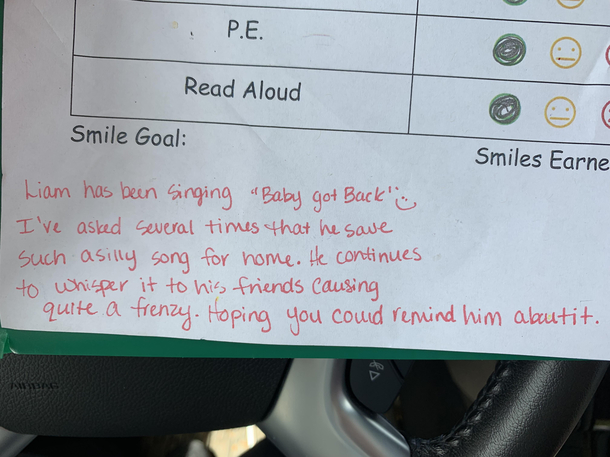 P.E.
Read Aloud
Smile Goal:
Smiles Earne
Liam has been singing "Baby got Back"
I've asked several times that he save
such a silly song for home. He continues
to whisper it to his friends causing
quite a frenzy. Hoping you could remind him about it.
AIRBAG